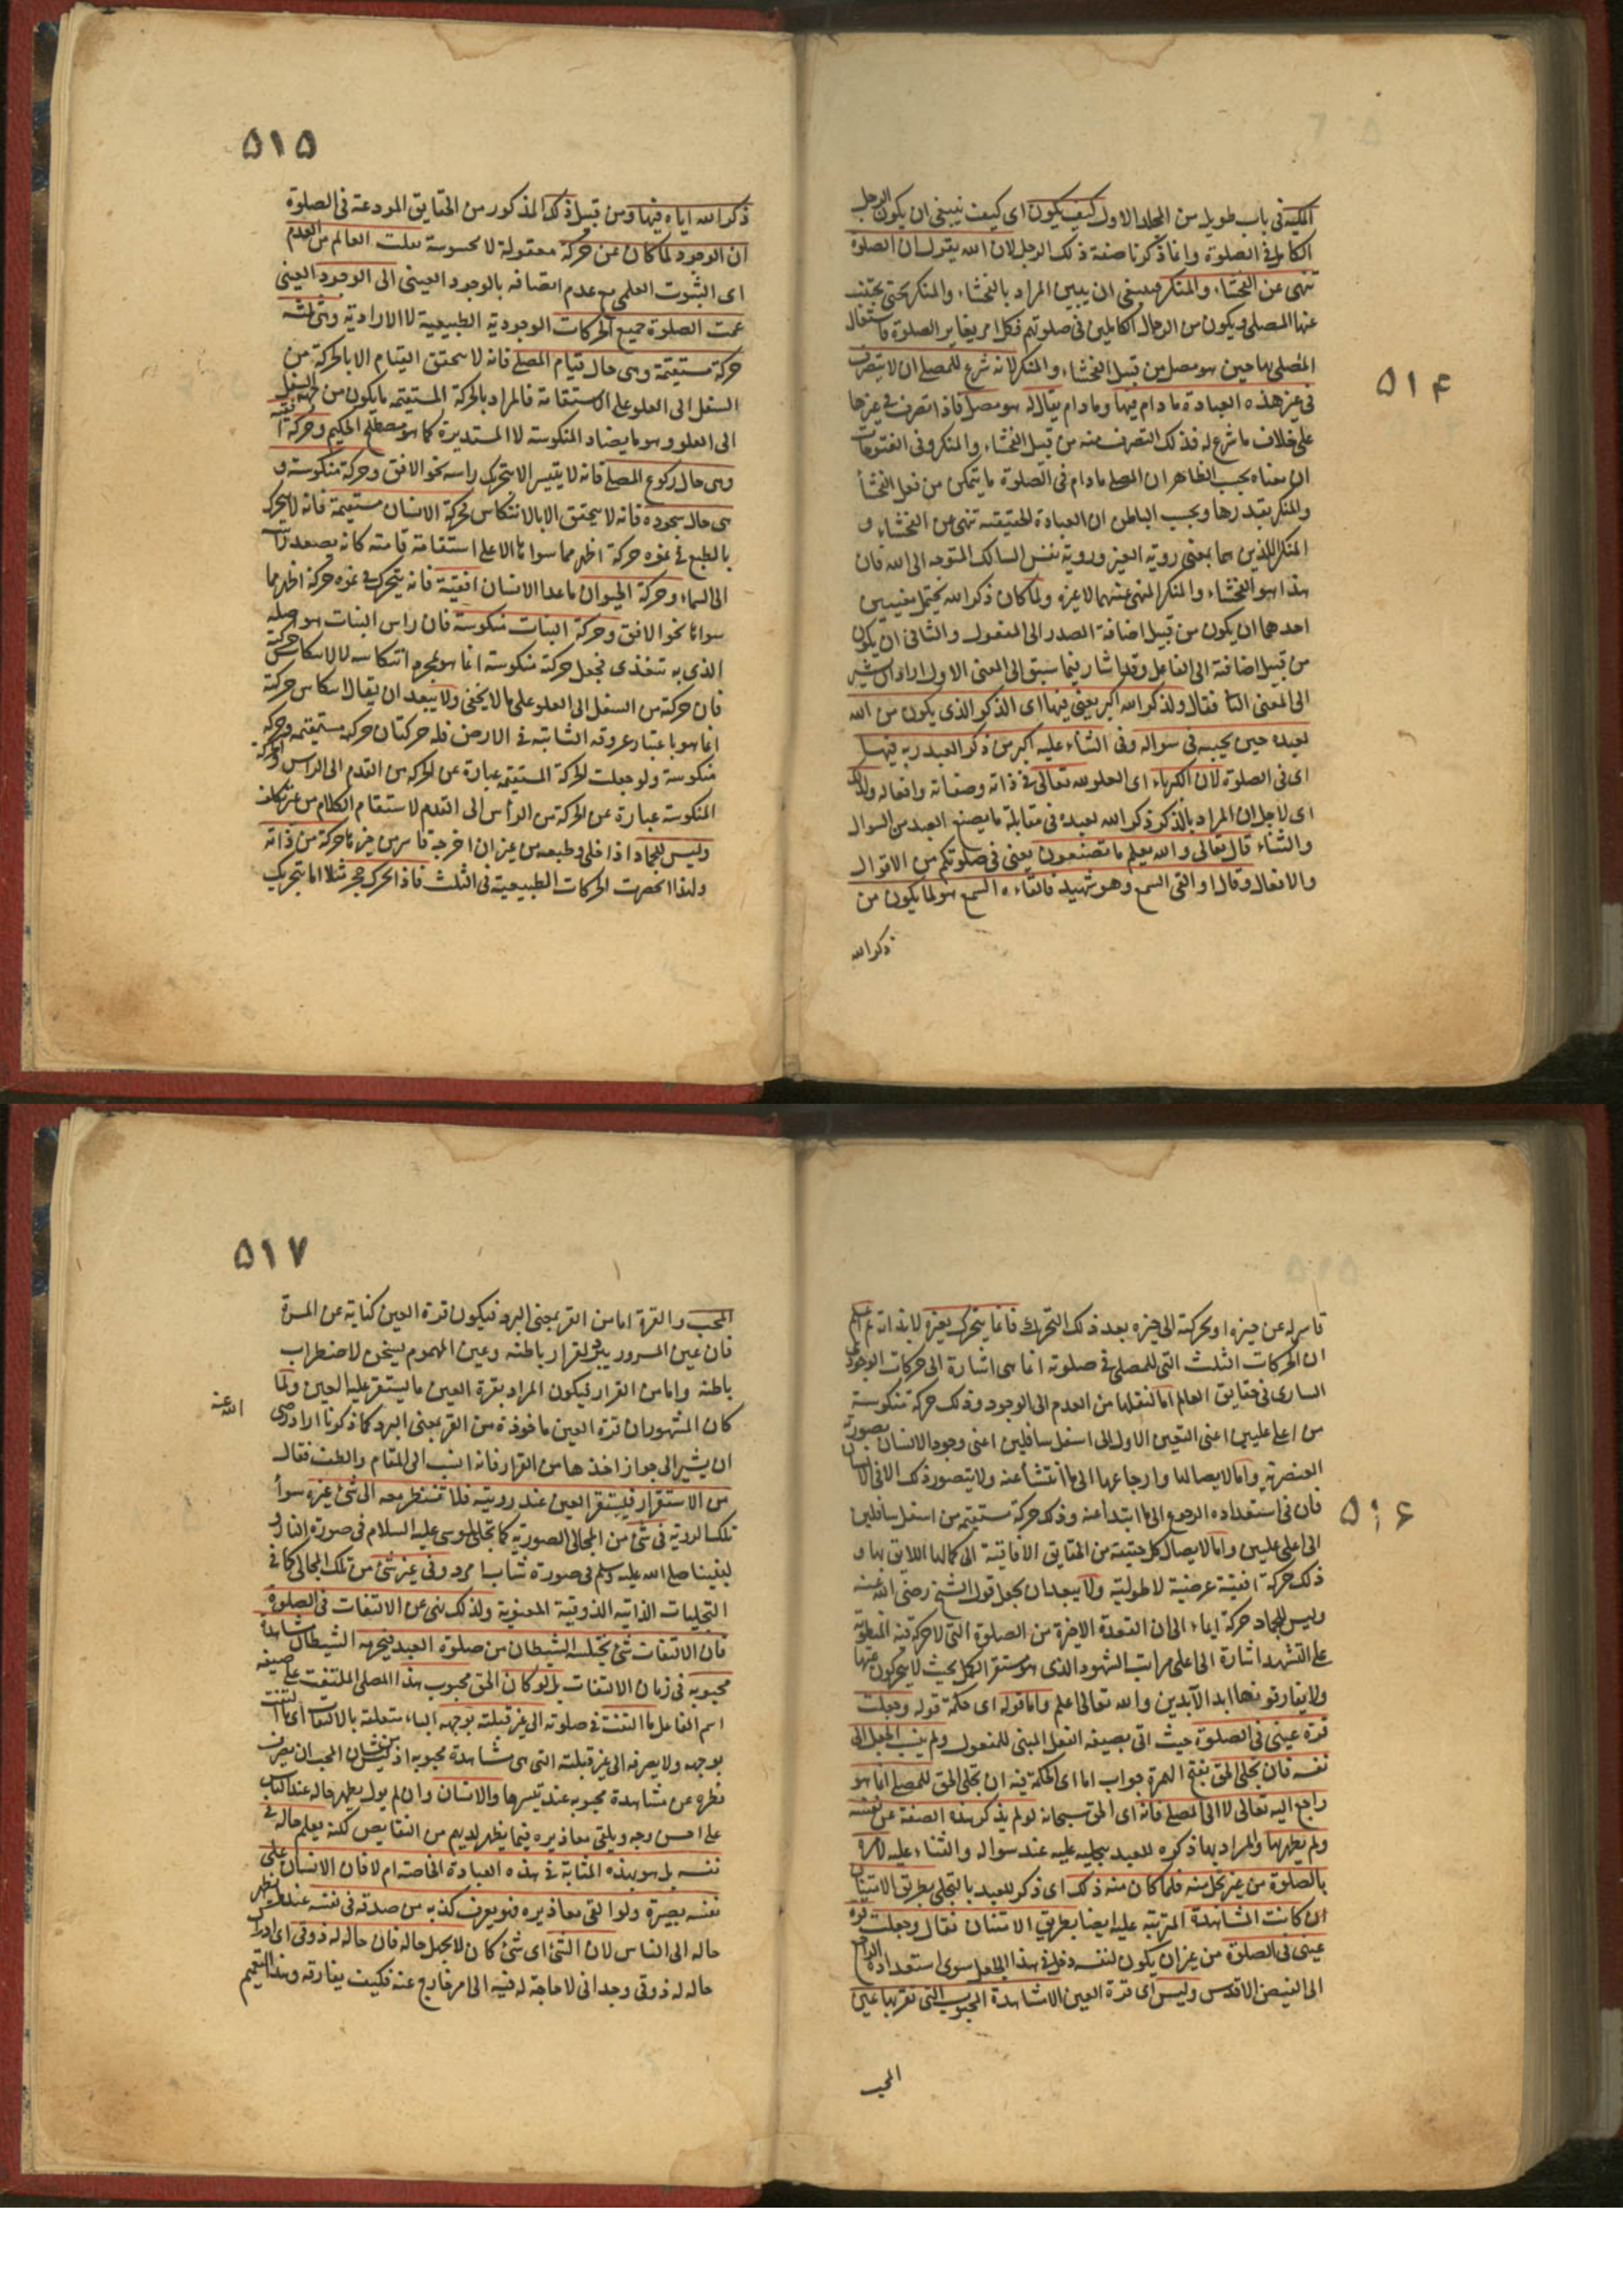 ٥١۴
المكية فى باب طويل من المجلد الاول كيف يكون اى كيف ينبغى ان يكون الرجل
الكامل فى الصلوة وانما ذكرنا صفة ذلك الرجل لان الله يقول ان الصلوة
تنهى عن الفحشاء والمنكر فينبغى ان يبين المراد بالفحشاء والمنكر حتى يجتنب
عنها المصلى ويكون من الرجال الكاملين فى صلوتهم فكل امر يغاير الصلوة فاشتغال
المصلى بها حين هو مصل من قبيل الفحشاء والمنكر لانه شرع للمصلى ان لا يتصرف
فى غير هذه العبادة ما دام فيها وما دام يقال له هو مصل فاذا تصرف فى غيرها
على خلاف ما شرع له فذلك التصرف منه من قبيل الفحشاء والمنكر وفى الفتوحات
ان معناه بحسب الظاهر ان المصلى ما دام فى الصلوة ما يتمكن من فعل الفحشاء
والمنكر بقدرها وبحسب الباطن ان العبادة الحقيقية تنهى عن الفحشاء و
المنكر اللذين هما بمعنى روية الغير وروية نفس السالك المتوجه الى الله فان
هذا هو الفحشاء والمنكر المنهى عنهما لا غيره ولما كان ذكر الله يحتمل معنيين
احدهما ان يكون من قبيل اضافة المصدر الى المفعول والثانى ان يكون
من قبيل اضافة الى الفاعل وقد اشار فيما سبق الى المعنى الاول اراد ان يشير
الى المعنى الثا فقال ولذكر الله اكبر يعنى فيها اى الذكر الذى يكون من الله
لعبده حين يجيبه فى سواله وفى الثناء عليه اكبر من ذكر العبد ربه فيها
اى فى الصلوة لان الكبرياء اى العلو لله تعالى فى ذاته وصفاته وافعاله ولذلك
اى لاجل ان المراد بالذكر ذكر الله لعبده فى مقابلة ما يصنع العبد من السوال
والثناء قال تعالى والله يعلم ما تصنعون يعنى فى صلوتكم من الاقوال
والافعال وقال او القى السمع وهو شهيد فالقاءه السمع هو لما يكون من
ذكر الله
٥١٥
ذكر الله اياه فيها ومن قبيل ذلك المذكور من الحقايق المودعة فى الصلوة
ان الوجود لما كان عن حركة معقولة لا محسوسة نقلت العالم من العدم
اى الثبوت العلمى مع عدم اتصافه بالوجود العينى الى الوجود العينى
عمت الصلوة جميع الحركات الوجودية الطبيعية لا الارادية وهى ثلثه
حركة مستقيمة وهى حال قيام المصلى فانه لا يتحقق القيام الا بالحركة من
السفل الى العلو على الاستقامة فالمراد بالحركة المستقيمة ما يكون من جهة السفل
الى العلو وهو ما يضاد المنكوسة لا المستديرة كما هو مصطلح الحكيم وحركة افقية
وهى حال ركوع المصلى فانه لا يتيسر الا بتحرك راسه نحو الافق وحركة منكوسة و
هى حال سجوده فانه لا يتحقق الا بالانتكاس فحركة الانسان مستقيمة فانه لا يتحرك
بالطبع فى نموه حركة اظهر مما سواها الا على استقامة قامته كانه يصعد
الى السماء وحركة الحيوان ما عدا الانسان افقية فانه يتحرك فى نموه حركة اظهر مما
سواها نحو الافق وحركة النبات منكوسة فان راس النبات هو اصله
الذى به تتغذى فجعل حركته منكوسة انما هو انتكاسه لا لانتكاس حركته
فان حركته من السفل الى العلو على ما لا يخفى ولا يبعد ان يقال انتكاس حركته
انما هو باعتبار عروقه الثابتة فى الارض فله حركتان حركة مستقيمة وحركة
منكوسة ولو جعلت الحركة المستقيمة عبارة عن الحركة من القدم الى الراس والحركة
المنكوسة عبارة عن الحركة من الرأس الى القدم لاستقام الكلام من غير تكلف
وليس للجماد اذا خلى وطبعه من غير ان اخرجه قاسر من حيزه حركة من ذاته
ولهذا انحصرت الحركات الطبيعية فى الثلث فاذا تحرك حجر مثلا انما يتحرك
٥١۶
قاسر له عن حيزه او بحركته الى حيزه بعد ذلك التحرك فانما يتحرك بغيره لا بذاته ثم اعلم
ان الحركات الثلث التى للمصلى فى صلوته انما هى اشارة الى حركات الوجود
السارى فى حقايق العالم اما لنقلها من العدم الى الوجود وذلك حركة منكوسة
من اعلى عليين اعنى التعين الاول الى اسفل سافلين اعنى وجود الانسان بصورته
العنصرية واما لايصالها وارجاعها الى ما انتشأ عنه ولا يتصور ذلك الا فى الانسان
فان فى استعداده الرجوع الى ما ابتدأ عنه وذلك حركة مستقيمة من اسفل سافلين
الى اعلى عليين واما لايصال كل حقيقة من الحقايق الافاقية الى كمالها اللايق بها و
ذلك حركة افقية عرضية لا طولية ولا يبعد ان يجعل قول الشيخ رضى الله عنه
وليس للجماد حركة ايماء الى ان القعدة الاخيرة من الصلوة التى لا حركة فيه المنطوية
على التشهد اشارة الى اعلى مراتب الشهود الذى هو مستقر الكمل بحيث لا يتحركون عنها
ولا يفارقونها ابد الآبدين والله تعالى اعلم واما قوله اى حكمة قوله وجعلت
قرة عينى فى الصلوة حيث اتى بصيغة الفعل المبنى للمفعول ولم ينسب الجعل الى
نفسه فان تجلى الحق بفتح الهمزة جواب اما اى الحكمة فيه ان تجلى الحق للمصلى انما هو
راجع اليه تعالى لا الى المصلى فانه اى الحق سبحانه لو لم يذكر هذه الصفة عن نفسه
ولم يظهرها والمراد بها ذكره للعبد بتجليه عليه عند سواله والثناء عليه لامره
بالصلوة من غير تجل منه فلما كان منه ذلك اى ذكر للعبد بالتجلى بطريق الامتنان
ان كانت المشاهدة المرتبه عليه ايضا بطريق الامتنان فقال وجعلت قرة
عينى فى الصلوة من غير ان يكون لنفسه دخل فى هذا الجعل سوى استعداده الراجع
الى الفيض الاقدس وليس اى قرة العين الا مشاهدة المحبوب التى تقر بها عين
المحب
٥١٧
المحب والقرة اما من القر بمعنى البرد فيكون قرة العين كناية عن المسرة
فان عين المسرور يبرد لقرار باطنه وعين المهموم يسخن لاضطراب
باطنه واما من القرار فيكون المراد بقرة العين ما يستقر عليه العين ولما
كان المشهور ان قرة العين ماخوذة من القر بمعنى البرد كما ذكرنا اراد رضى
الله عنه
ان يشير الى جواز اخذها من القرار فانه انسب الى المقام والطف فقال
من الاستقرار فيستقر العين عند رويته فلا تنظر معه الى شئ غيره سوأ
تلك الروية فى شئ من المجالى الصورية كما تجلى لموسى عليه السلام فى صورة النار و
لنبينا صلى الله عليه وسلم فى صورة شاب امرد وفى غير شئ من تلك المجالى كما فى
التجليات الذاتية الذوقية المعنوية ولذلك نهى عن الالتفات فى الصلوة
فان الالتفات شئ يختلسه الشيطان من صلوة العبد فيحرمه الشيطان مشاهدة
محبوبه فى زمان الالتفات بل لو كان الحق محبوب هذا المصلى الملتفت على صيغة
اسم الفاعل ما التفت فى صلوته الى غير قبلته بوجهه الباء متعلقة بالالتفات اى ما التفت
بوجهه ولا يصرفه الى غير قبلته التى هى مشاهدة محبوبه اذ ليس من شان المحب ان يصرف
نظره عن مشاهدة محبوبه عند تيسرها والانسان وان لم يول يظهر حاله عند الناس
على احسن وجه ويلقى معاذيره فيما يظهر لديهم من النقايص لكنه يعلم حاله فى
نفسه بل هو بهذه المثابة فى هذه العبادة الخاصة ام لا فان الانسان على
نفسه بصيرة ولو القى معاذيره فهو يعرف كذبه من صدقه فى نفسه عند
حاله الى الناس لان الشئ اى شئ كان لا يجهل حاله فان حاله له ذوقى اى ادراك
حاله له ذوقى وجدانى لا حاجة له فيه الى امر خارج عنه فكيف يفارقه وهذا التعميم